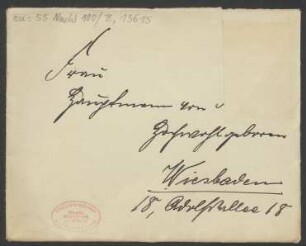 zu: 55 Nachl 100/B, 13615
Frau
Hauptmann von
Hochwohlgeboren
Wiesbaden
18, Adolfsallee 18